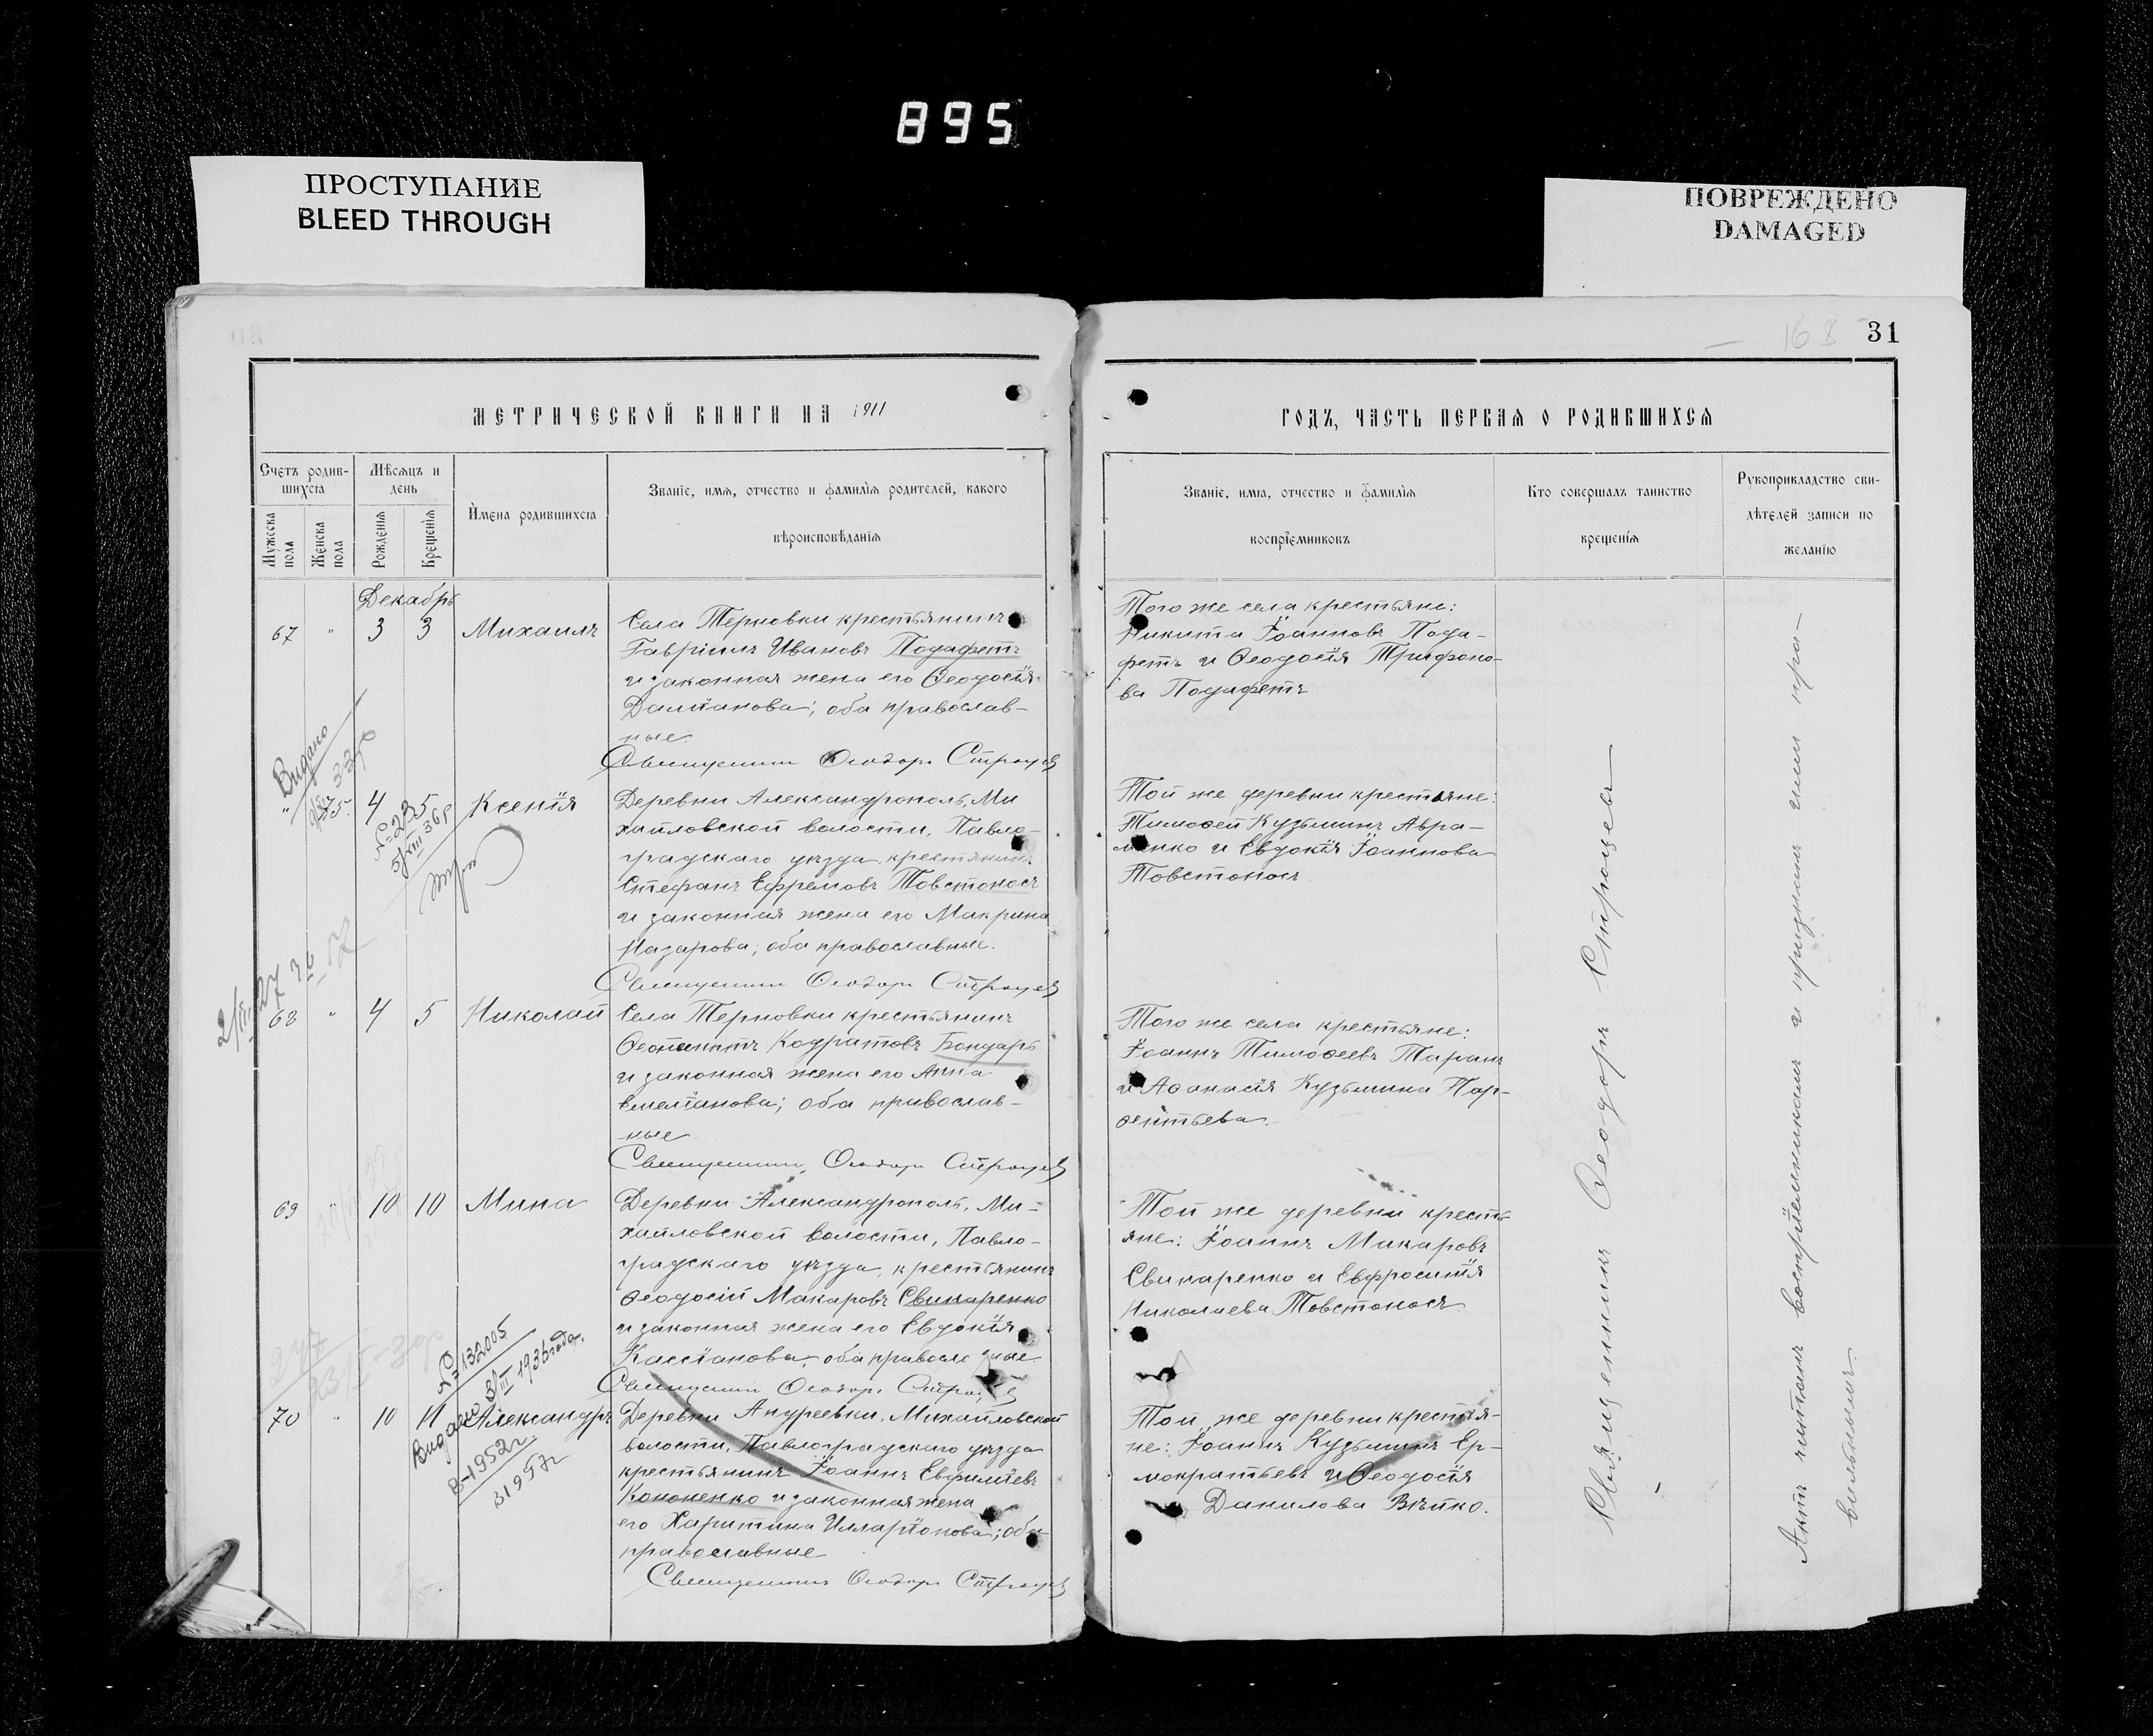 895
ПРОСТУПАНИЕ
BLEED THROUGH
ПОВРЕЖДЕНО
DAMAGED
168
31
МЕТРИЧЕСКОЙ КНИГИ НА 1911
ГОДЪ, ЧАСТЬ ПЕРВАЯ О РОДИВШИХСЯ
Счетъ родив-
шихся
Мужеска
пола
Женска
пола
Мѣсяцъ и
день
Рожденія
Крещенія
Имена родившихся
Званіе, имя, отчество и фамилія родителей, какого
вѣроисповѣданія
Званіе, имя, отчество и фамилія
воспріемниковъ
Кто совершалъ таинство
крещенія
Рукоприкладство сви-
дѣтелей записи по
желанію
Декабрь
67 " 3 3 Михаилъ
Села Терновки крестьянинъ
Гавріилъ Ивановъ Подафетъ
и законная жена его Ѳеодосія
Даміанова; оба православ-
ные.
Священникъ Ѳеодоръ Строцев
Того же села крестьяне:
Никита Іоанновъ Пода-
фетъ и Ѳеодосія Трифоно-
ва Подафетъ
Видано
№ 235
" 75. 4 5 Ксенія
Деревни Александрополь, Ми
хайловской волости, Павло-
градскаго уѣзда крестьянинъ
Стефанъ Ефремовъ Товстоносъ
и законная жена его Макрина
Назарова; оба православные.
Священникъ Ѳеодоръ Строцев
Той же деревни крестьяне:
Тимоѳей Кузьминъ Авра-
менко и Евдокія Іоаннова
Товстоносъ
68 " 4 5 Николай
Села Терновки крестьянинъ
Кодратовъ Бондарь
и законная жена его Анна
Емеліанова; оба православ-
ные
Священникъ Ѳеодоръ Строцев
Того же села крестьяне:
Іоаннъ Тимоѳеевъ Таранъ
и Аѳанасія Кузьмина Пар-
ѳентьева.
69 " 10 10 Мина
Деревни Александрополь, Ми-
хайловской волости, Павло-
градскаго уѣзда, крестьянинъ
Ѳеодосій Макаровъ Свинаренко
и законная жена его Евдокія
Кассіанова, оба правосл ные
Священникъ Ѳеодоръ
Той же деревни кресть-
яне: Іоаннъ Макаровъ
Свинаренко и Евфросинія
Николаева Товстоносъ
№ 132005
Видано 3/III 1936 года.
В-1952 г.
В 1957 г
70 " 10 11 Александръ
Деревни Андреевки, Михайловской
волости, Павлоградскаго уѣзда
крестьянинъ Іоаннъ Евфиміевъ
Кононенко и законная жена
его Харитина Илларіонова; оба
православные
Священникъ Ѳеодоръ Строцев
Той же деревни крестья-
не: Іоаннъ Кузьминъ Ер-
мократьевъ и Ѳеодосія
Данилова Вѣтко.
Священникъ Ѳеодоръ Строцев
Актъ читанъ воспріемникамъ и признанъ ими пра-
вильнымъ